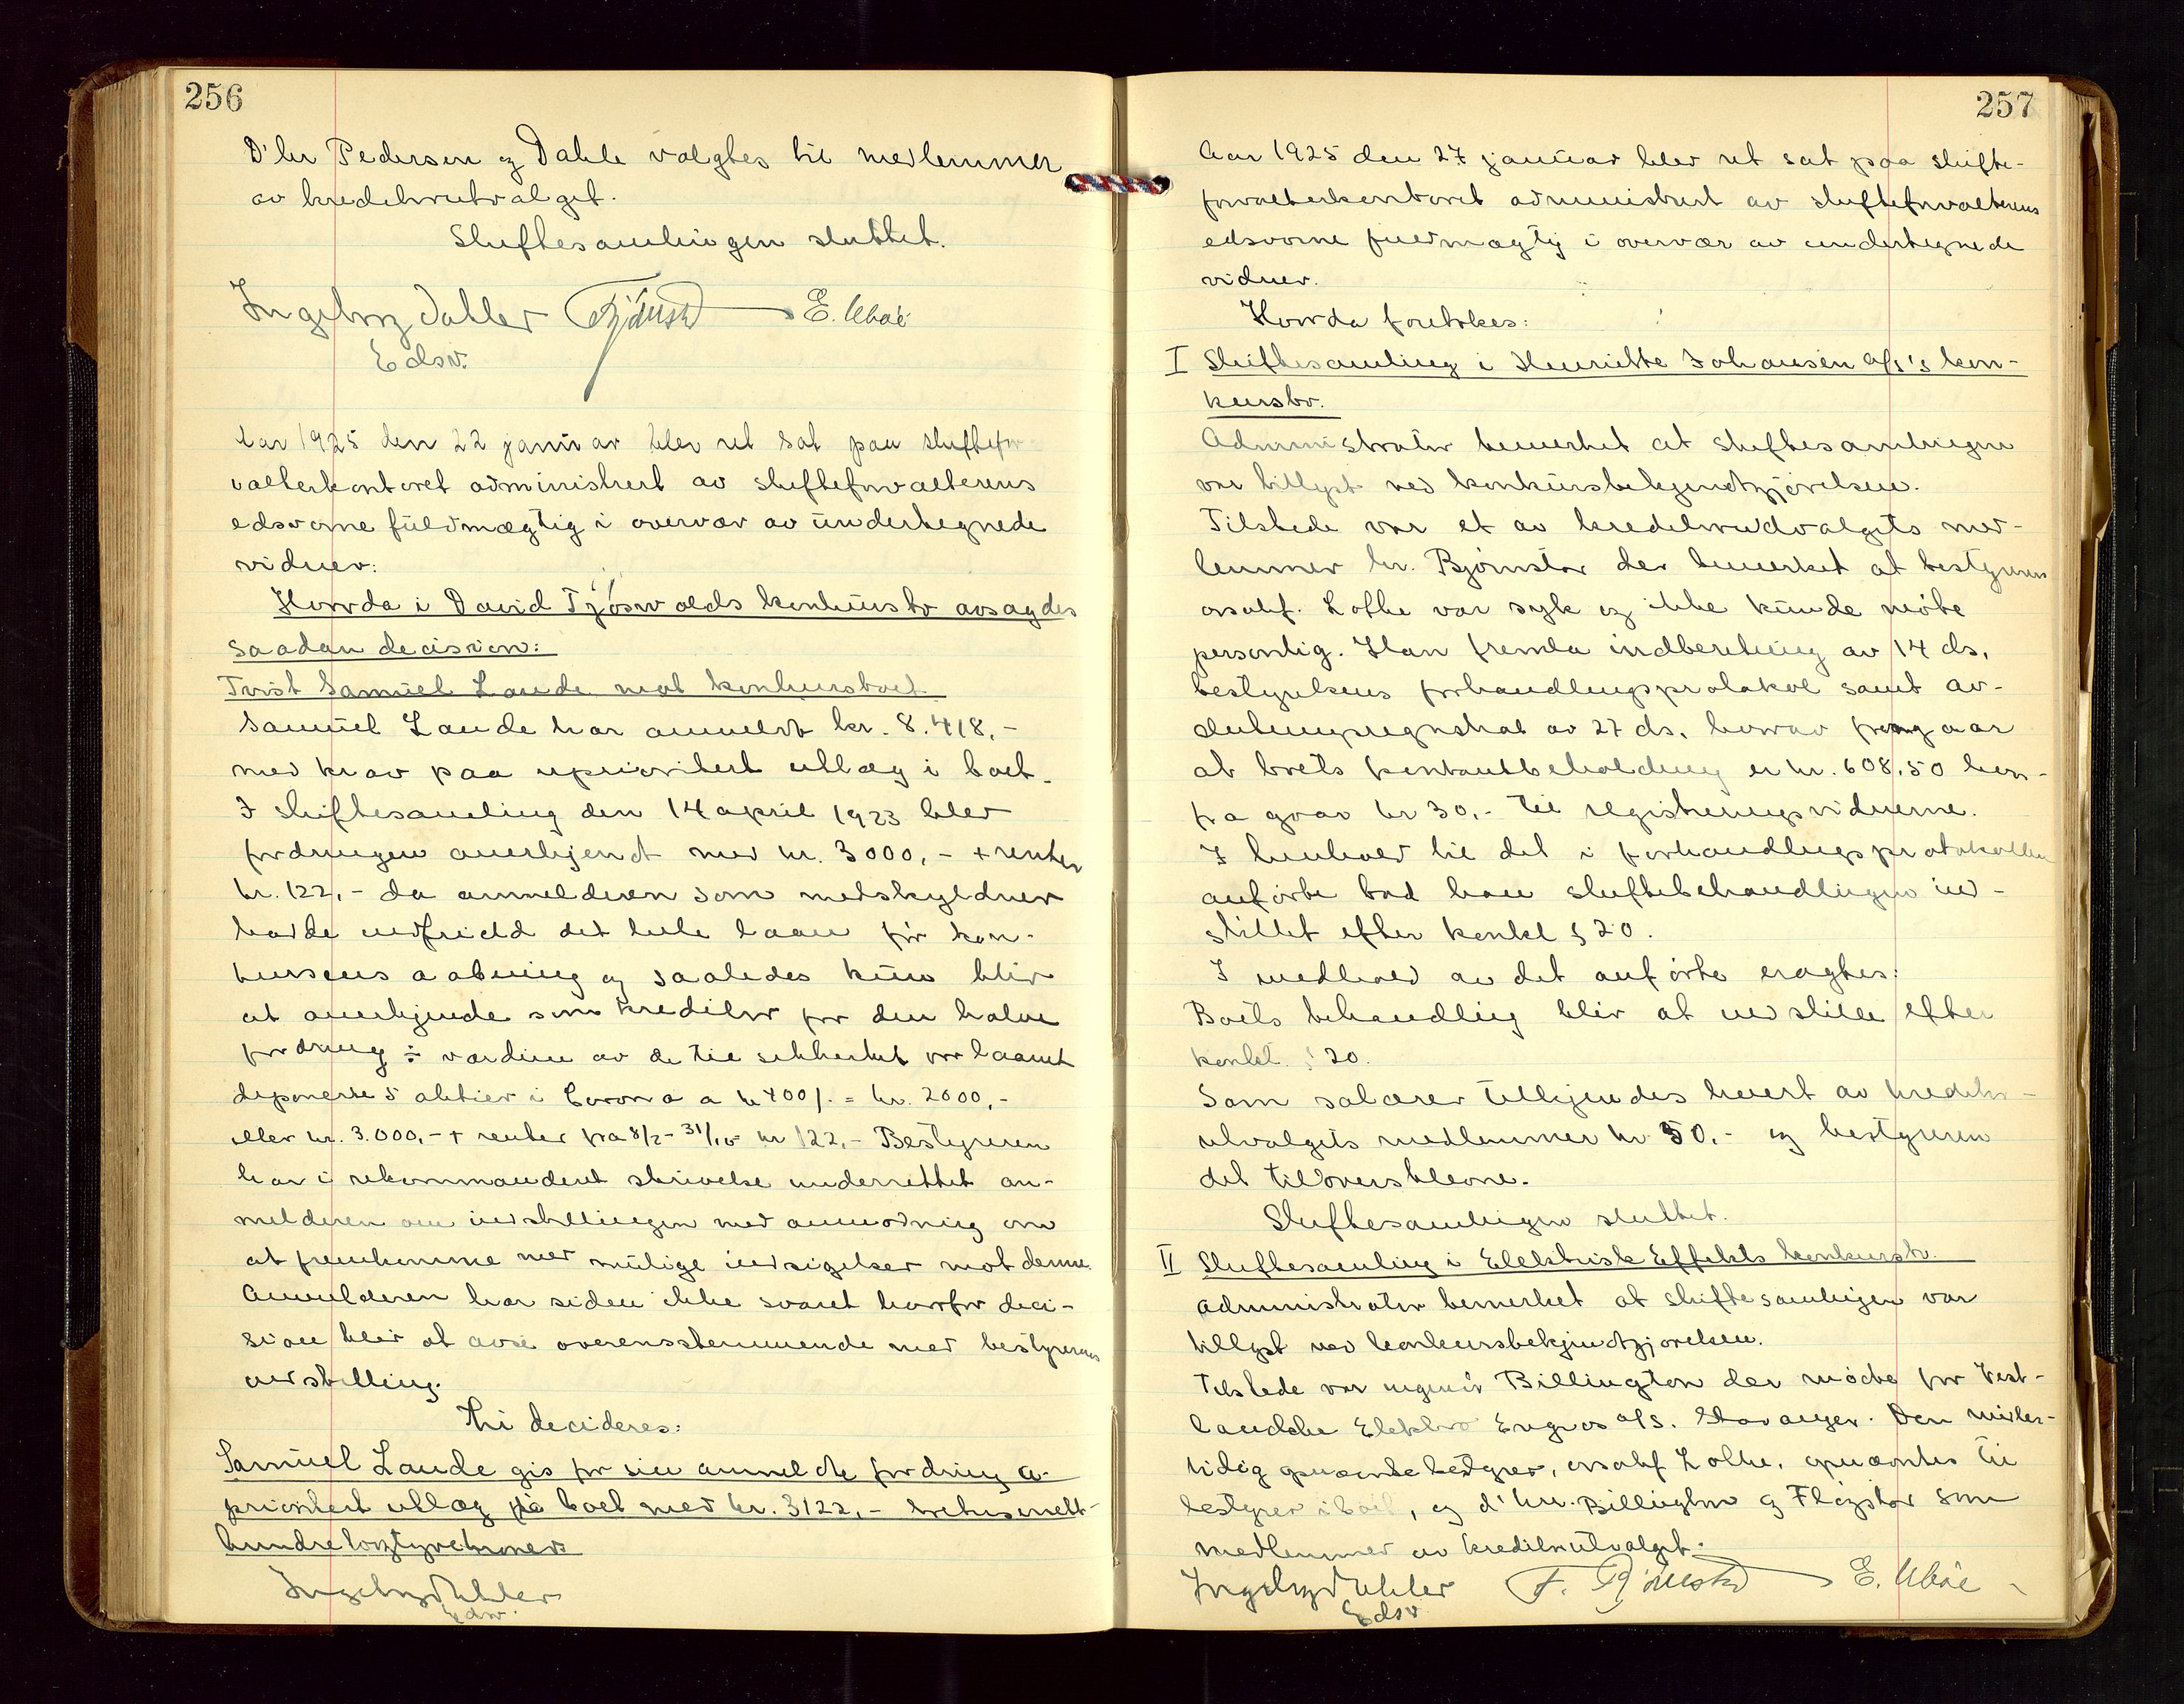 256
D'hr Pedersen og Dahle valgtes til medlemmer
av kreditorutvalget.
Skiftesamlingen sluttet.
Ingeborg Dahler E. Uboe
Edsv.
Aar 1925 den 22 januar blev ret sat paa skiftefor-
valterkontoret administrert av skifteforvalterens
edsvorne fuldmægtig i overvær av undertegnede
vidner:
Hvorda i David Tjøsvolds konkursbo avsagdes
saadan decision:
Tvist Samuel Lande mot konkursboet.
Samuel Lande har anmeldt kr. 8.418,-
med krav paa uprioritert utlæg i boet.
I skiftesamling den 14 april 1923 blev
fordringen anerkjendt med kr. 3000,- + renter
kr. 122,- da anmelderen som medskyldner
hadde indfridd det hele laan før kon-
kursens aabning og saaledes kun blir
at anerkjende som kreditor for den halve
fordring ÷ værdien av de til sikkerhet for laanet
deponerte 5 aktier i Corona a kr 400/- = kr. 2000,-
eller kr. 3.000,- + renter fra 8/2 - 31/10 kr 122,- Bestyreren
har i rekommandert skrivelse underrettet an-
melderen om indstillingen med anmodning om
at fremkomme med mulige indsigelser mot denne.
Anmelderen har siden ikke svaret hvorfor deci-
sion blir at avsi overensstemmende med bestyrerens
indstilling.
Thi decideres:
Samuel Lande gis for sin anmeldte fordring u-
prioritert utlæg i boet med kr. 3122,- tretusenett-
hundreogtyvetokroner.
Ingeborg Dahler
Edsv.
257
Aar 1925 den 27 januar blev ret sat paa skifte-
forvalterkontoret administrert av skifteforvalterens
edsvorne fuldmægtig i overvær av undertegnede
vidner.
Hvorda foretokes:
I Skiftesamling i Henriette Johansen A/S's kon-
kursbo.
Administrator bemerket at skiftesamlingen
var tillyst ved konkursbekjendtgjørelsen.
Tilstede var et av kreditorutvalgets med-
lemmer hr. Bjørnstad der bemerket at bestyreren
orsakf. Lothe var syk og ikke kunde møte
personlig. Han fremla indberetning av 14 ds,
bestyrelsens forhandlingsprotokol samt av-
slutningsregnskab av 27 ds. hvorav fremgaar
at boets kontantbeholdning er kr. 608,50 hvor-
fra gaar kr 30,- til registreringsvidnerne.
I henhold til det i forhandlingsprotokollen
anførte bad han skiftebehandlingen ind-
stillet efter konkl § 20.
I medhold av det anførte eragtes:
Boets behandling blir at indstille efter
konkl. § 20.
Som salærer tilkjendes hvert av kreditor-
utvalgets medlemmer kr 50,- og bestyreren
det tiloversblevne.
Skiftesamlingen sluttet.
II Skiftesamling i Elektrisk Effekts konkursbo.
Administrator bemerket at skiftesamlingen var
tillyst ved konkursbekjendtgjørelsen.
Tilstede var ingeniør Billington der møtte for Vest-
landske Elektro Engros A/S. Stavanger. Den midler-
tidig opnævnte bestyrer, orsakf Lothe, opnævntes til
bestyrer i boet, og d'hrr. Billington og Fligstad som
medlemmer av kreditorutvalget.
Ingeborg Dahler F. Bjørnstad E. Uboe
Edsv